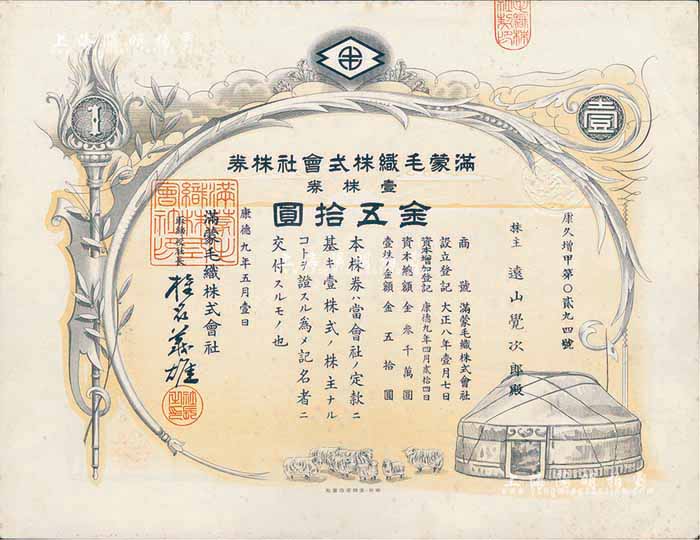 滿蒙毛織株式會社株券
壹株券
金五拾圓
壹
1
康久增甲第〇貳九四號
株主 遠山覺次郎殿
商號 滿蒙毛織株式會社
設立登記 大正八年壹月七日
資本增加登記 康德九年四月貳拾四日
資本總額 金參千萬圓
壹株ノ金額 金五拾圓
本株券ハ當會社ノ定款ニ
基キ壹株式ノ株主ナル
コトヲ證スル爲メ記名者ニ
交付スルモノ也
康德九年五月壹日
滿蒙毛織株式會社
椎名義雄
滿蒙毛織株式會社印